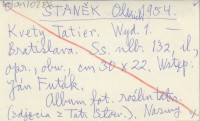 STANĚK Oldřich 1954.
Kvety Tatier. Wyd. 1. —
Bratislava. Ss. nlb. 132, il.,
opr., obw., cm 30 x 22. Wstęp:
Ján Futák.
Album fot. roślin tatrz.
(zdjęcia z Tatr Słow.). Nazwy